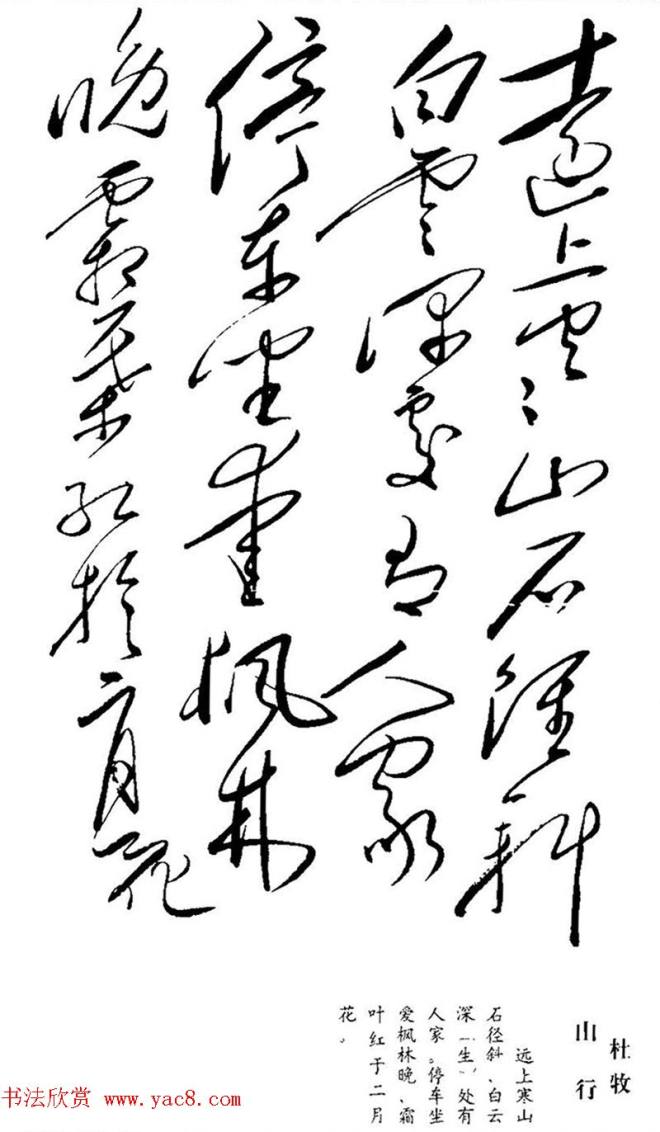 遠上寒山石徑斜
白雲深處有人家
停車坐愛楓林
晚霜葉紅於二月花
杜牧
山行
远上寒山
石径斜、白云
深(生)处有
人家。停车坐
爱枫林晚、霜
叶红于二月
花。
书法欣赏 www.yac8.com